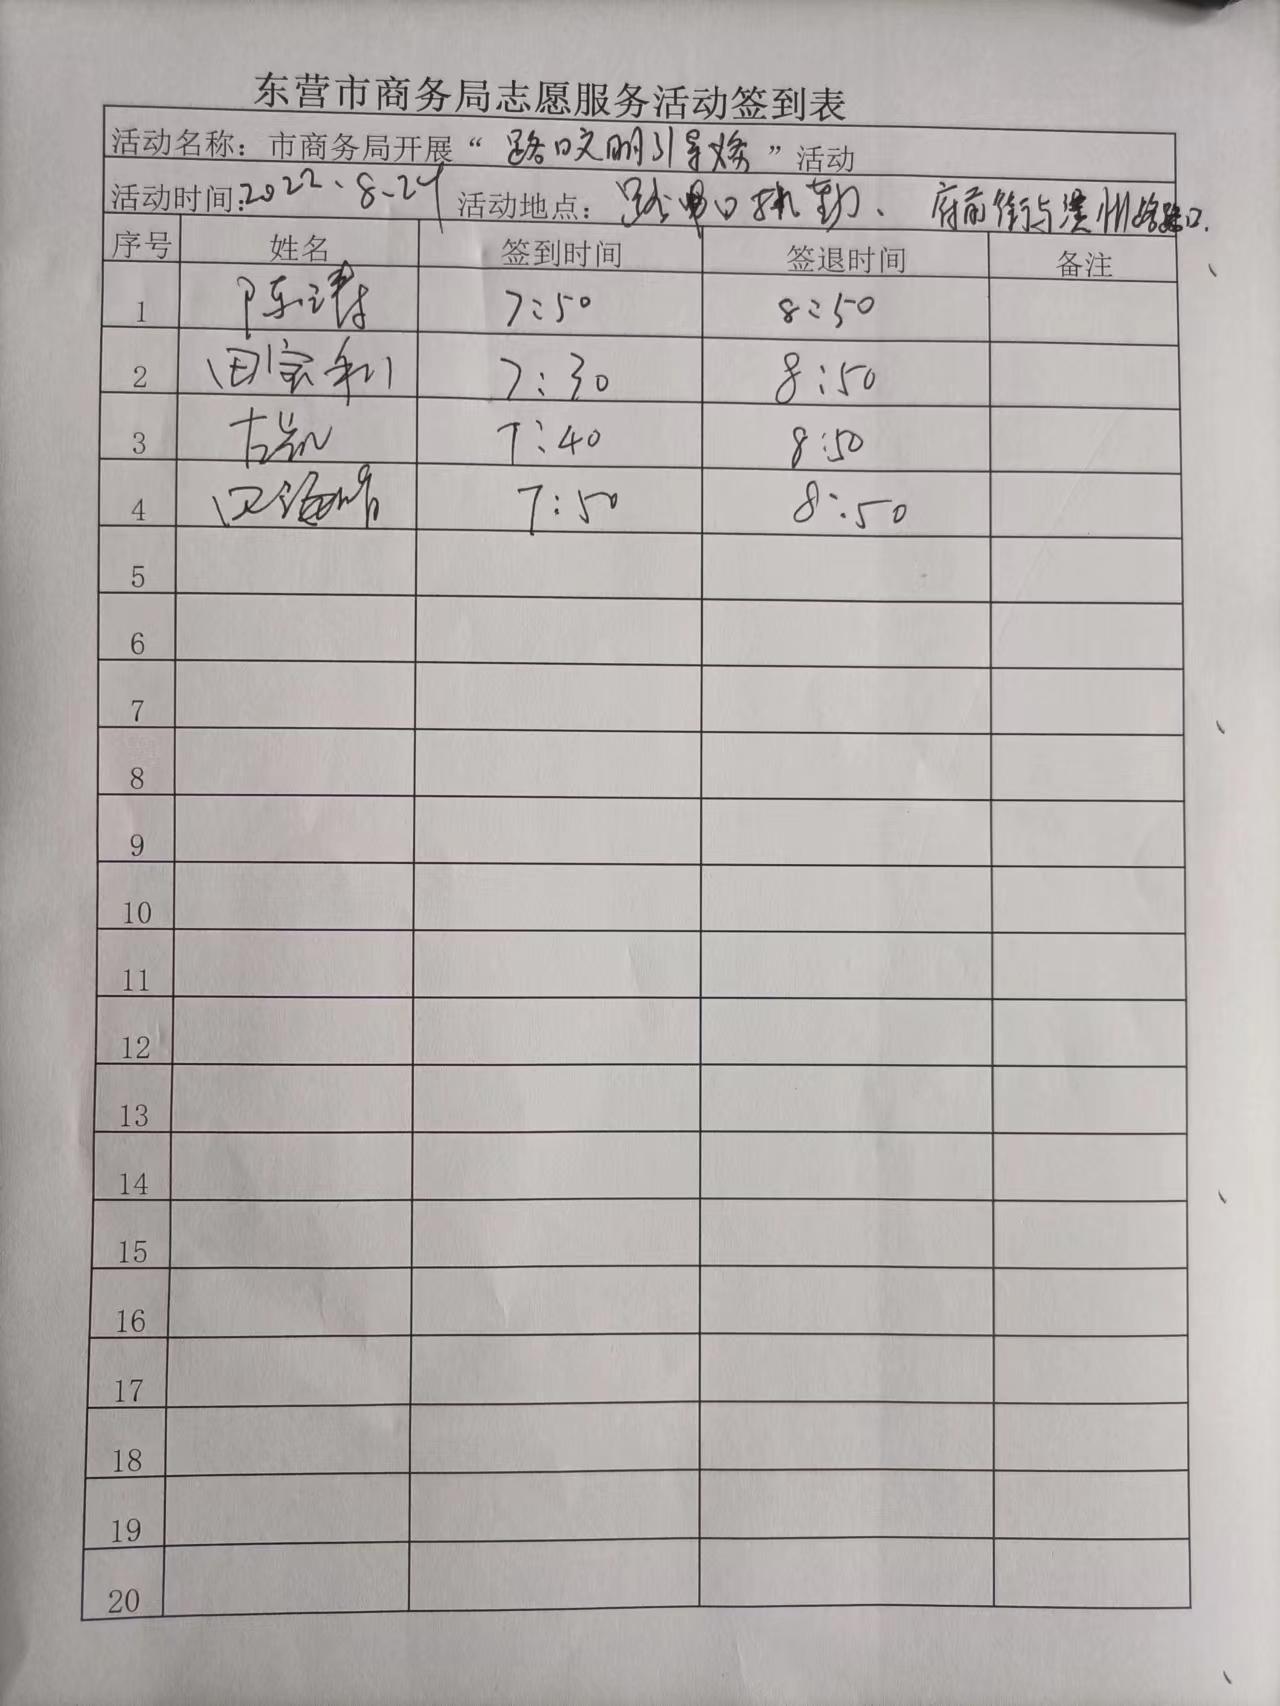 东营市商务局志愿服务活动签到表
活动名称：市商务局开展“路口文明引导”活动
活动时间：2022.8.24 活动地点：路口执勤、府前街与滨州路路口.
序号 姓名 签到时间 签退时间 备注
1 陈 7:50 8:50
2 田宝利 7:30 8:50
3 古凯 7:40 8:50
4 7:50 8:50
5
6
7
8
9
10
11
12
13
14
15
16
17
18
19
20